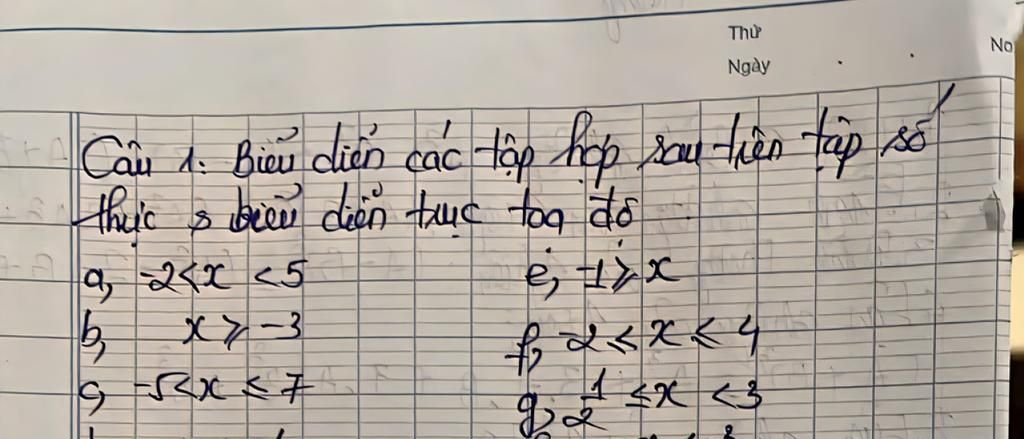 Thứ
Ngày
No
Câu 1: Biểu diễn các tập hợp sau trên tập số
thực biểu diễn trục toạ độ
a, -2 < x < 5
e, -1 ≥ x
b, x ≥ -3
f, -2 ≤ x ≤ 4
c, -5 < x ≤ 7
g, 1/2 ≤ x < 3